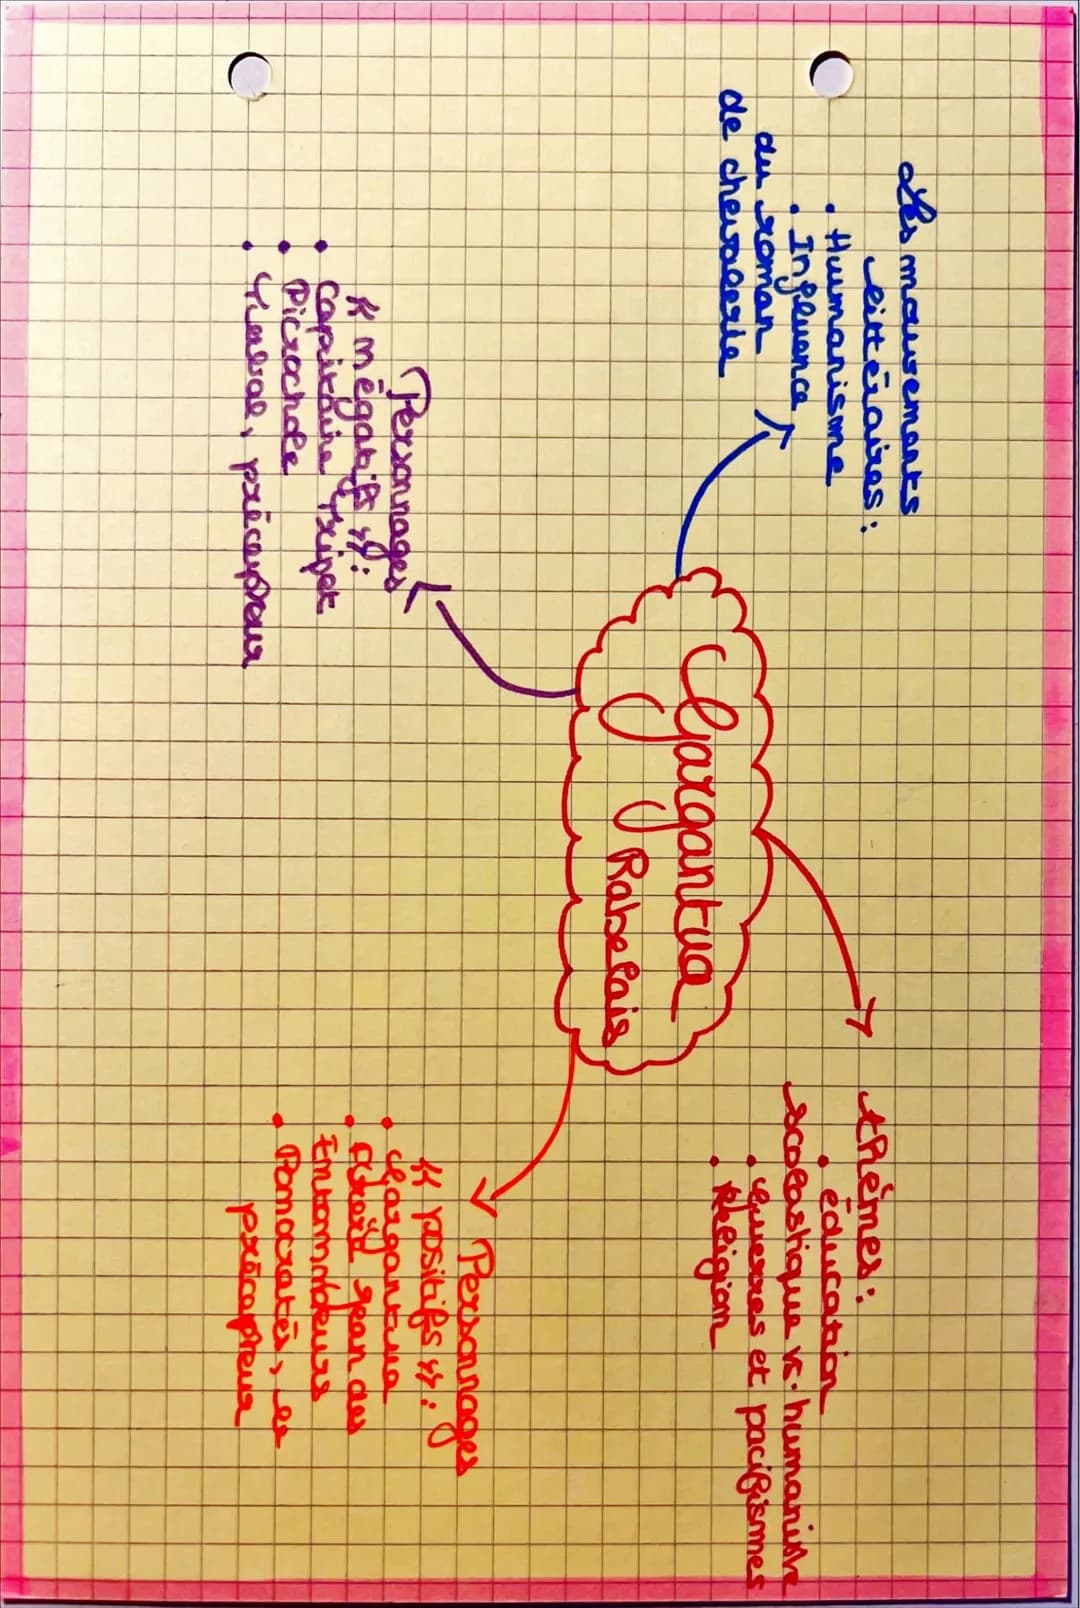 Les mouvements
littéraires :
• Humanisme
• Influence
du roman
de chevalerie
Gargantua
Rabelais
thèmes :
• éducation
scolastique vs. humaniste
• guerres et pacifismes
• Religion
Personnages
« négatifs » :
• Capitaine Tripet
• Picrochole
précepteur
Personnages
« positifs » :
• Gargantua
• Frère Jean des
Entommeurs
• Ponocratès, le
précepteur